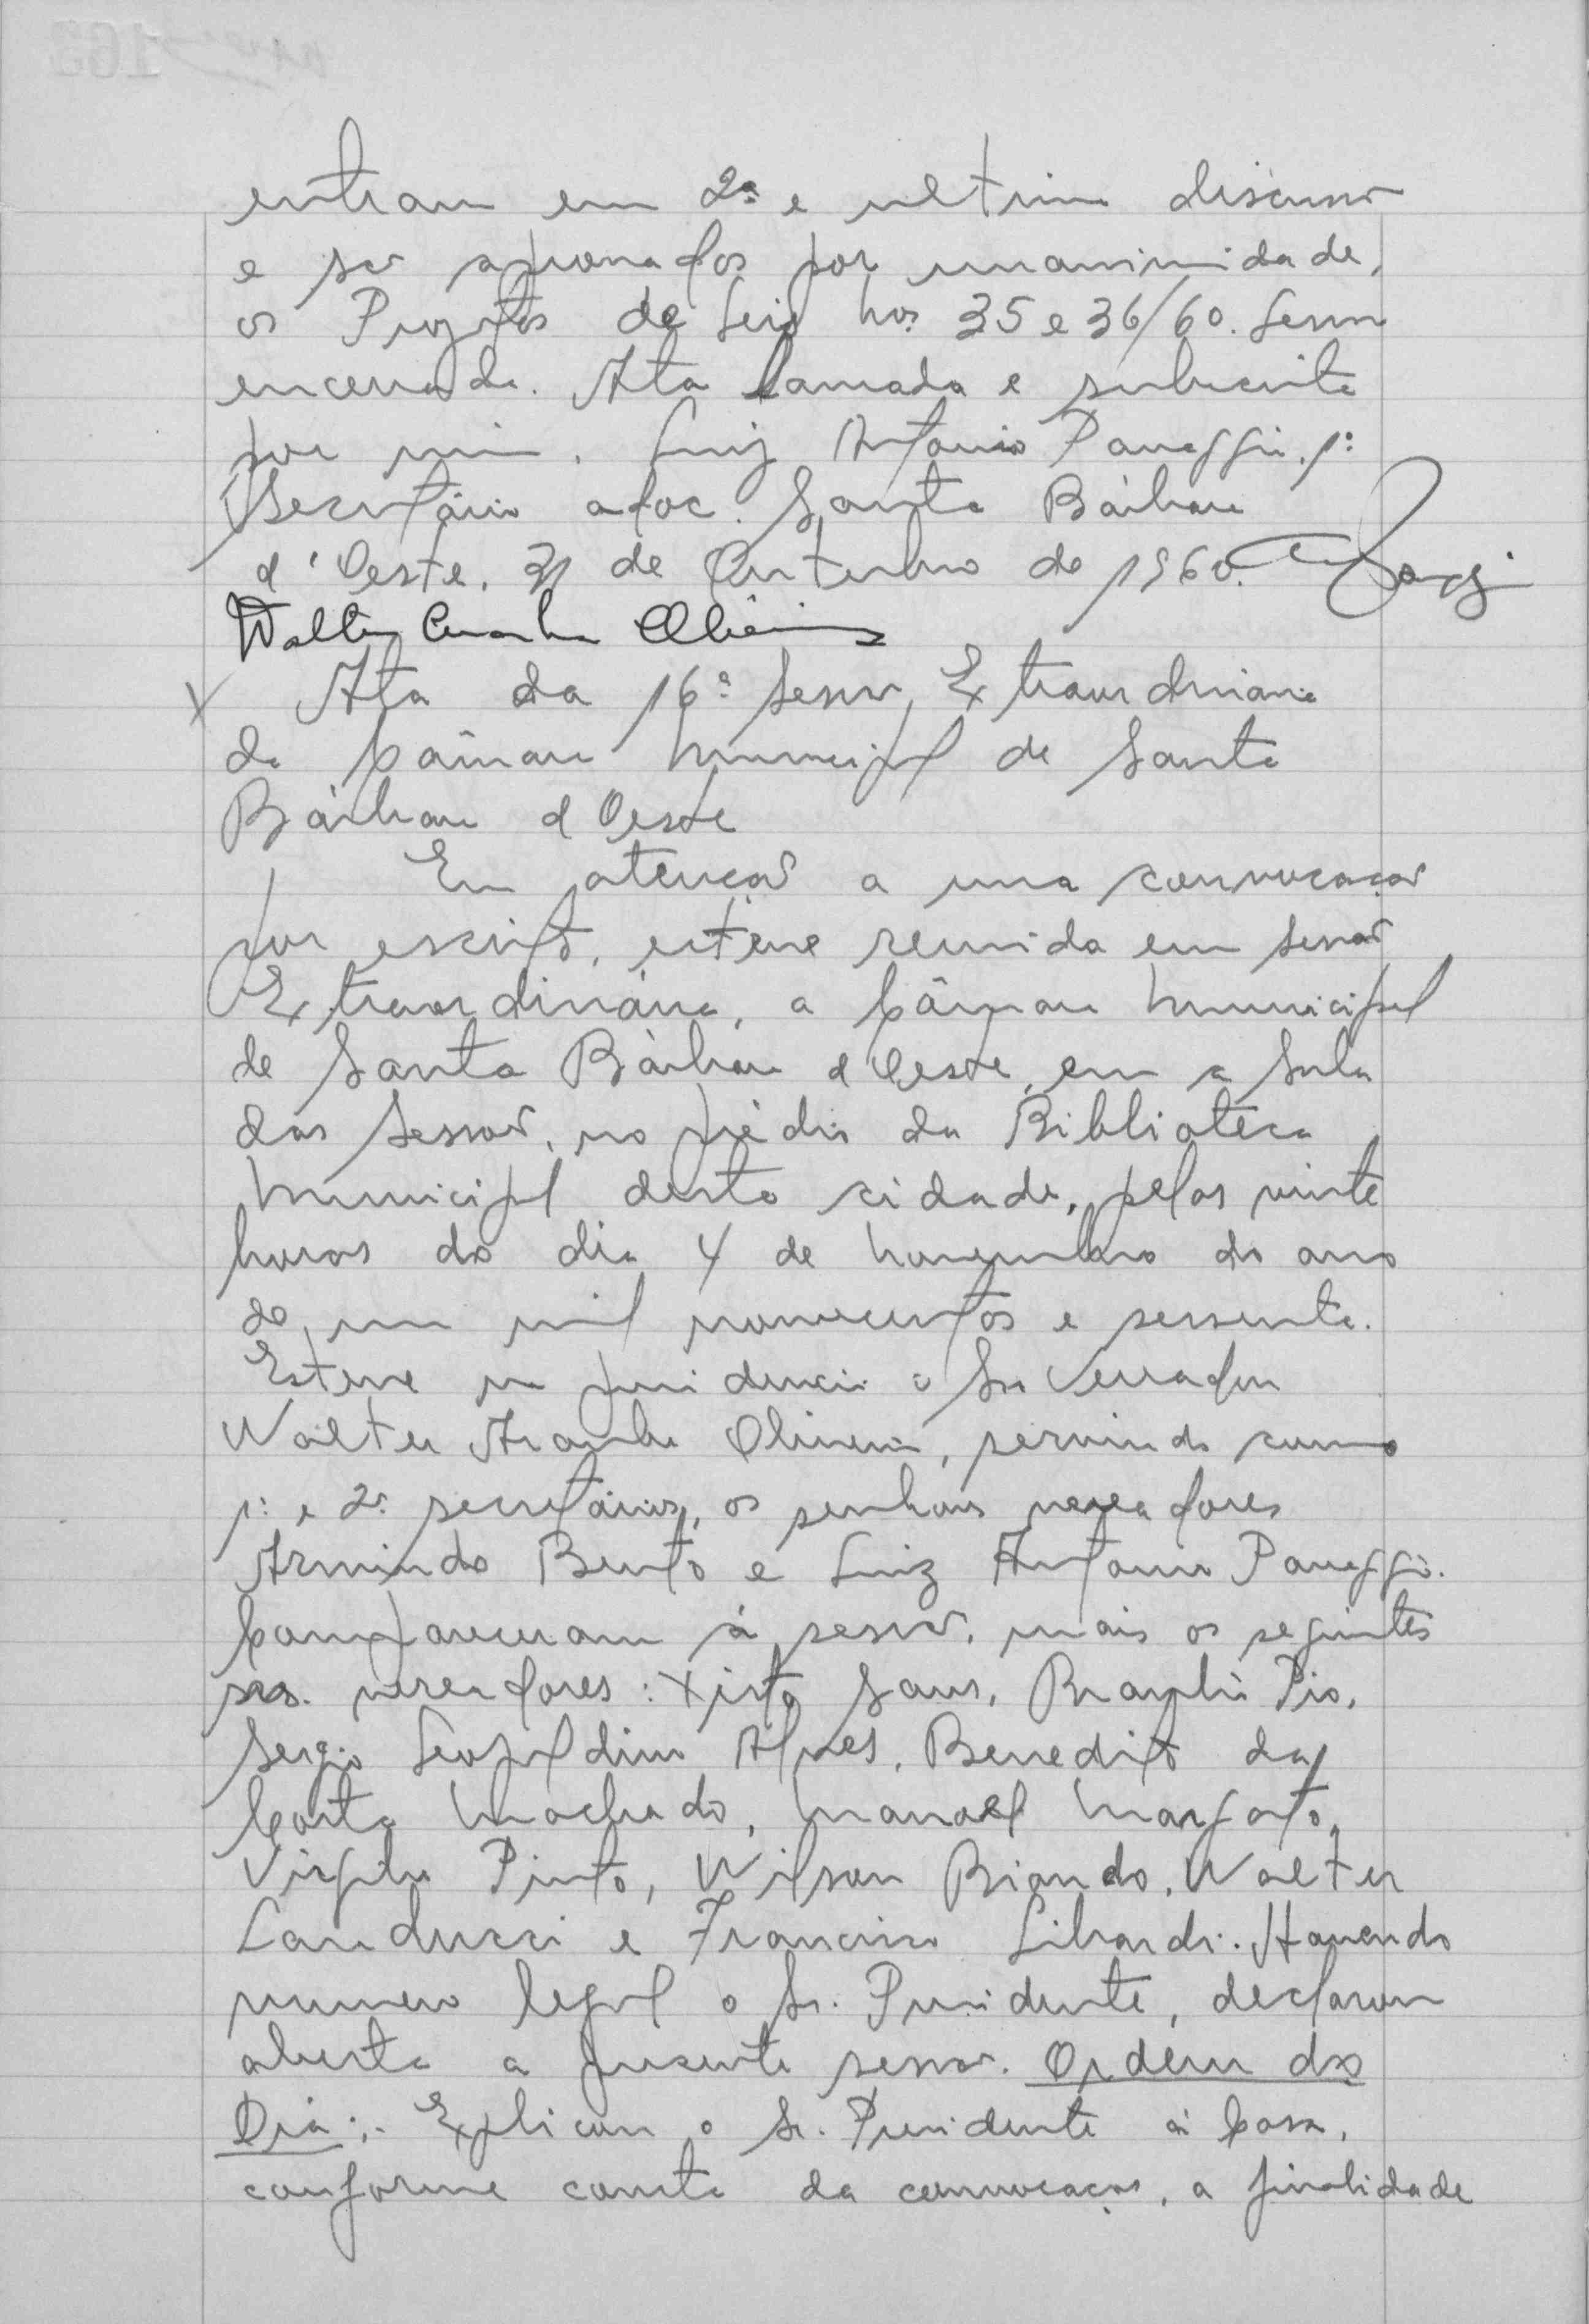 entram em 2ª e ultima discussão
e são aprovados por unanimidade,
os Projetos de Leis nos. 35 e 36/60. Sessão
encerrada. Ata lavrada e subscrita
por mim, Luiz Antonio Paneggio, 1º
Secretário adoc. Santa Bárbara
d'Oeste, 31 de Outubro de 1960.
Walter Oliveira
Ata da 16ª Sessão Extraordinaria
da Câmara Municipal de Santa
Bárbara d'Oeste
Em atenção a uma convocação
por escrito, esteve reunida em sessão
Extraordinária, a Câmara Municipal
de Santa Bárbara d'Oeste, em a Sala
das Sessão, no prédio da Biblioteca
Municipal desta cidade, pelas vinte
horas do dia 4 de novembro do ano
de um mil novecentos e sessenta.
Esteve na presidencia o Sr. Vereador
Walter Oliveira, servindo como
1º e 2º secretários, os senhores vereadores
Armindo Bento e Luiz Antonio Paneggio.
Compareceram à sessão, mais os seguintes
srs. vereadores: Xisto Sans, Braulio Pio,
Sergio Leopoldino Alves, Benedito da
Costa Machado, Manoel Margato,
Virgilio Pinto, Wilson Biondo, Walter
Landucci e Francisco Libardi. Havendo
numero legal o Sr. Presidente, declarou
aberta a presente sessão. Ordem do
Dia:- Explicou o Sr. Presidente à Casa,
conforme consta da convocação, a finalidade